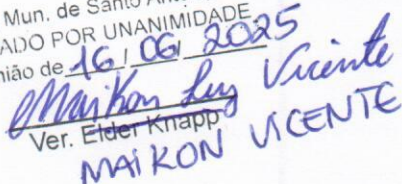 Mun. de Santo An
ADO POR UNANIMIDADE
nião de 16 / 06 / 2025
Maikon Luy Vicente
Ver. Elder Knapp
MAIKON VICENTE